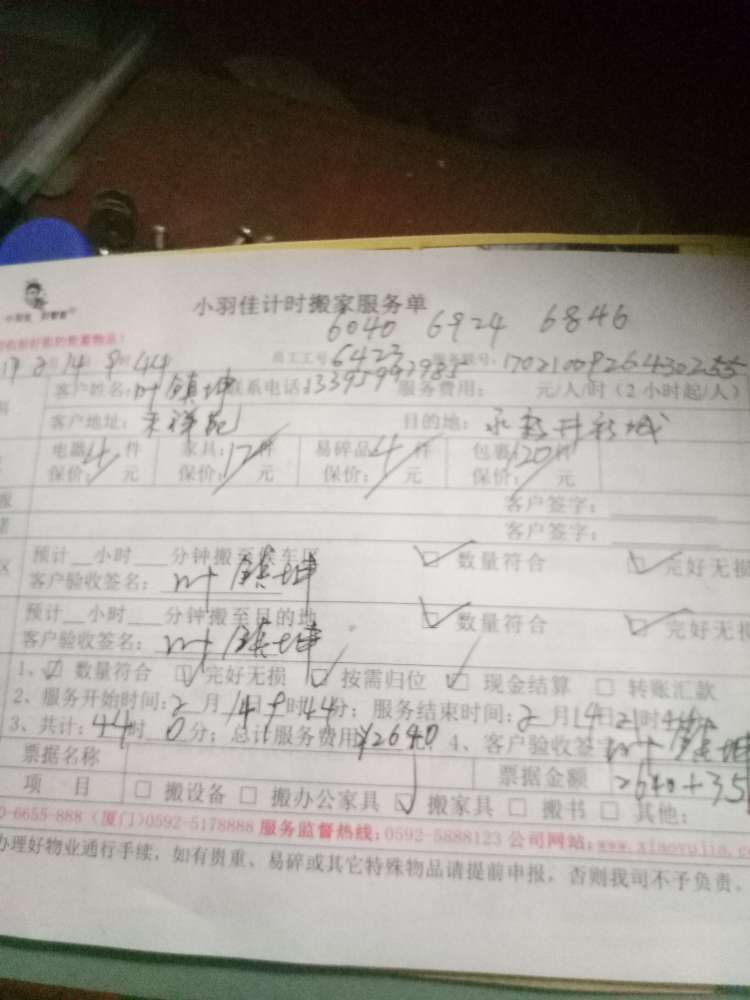 小羽佳计时搬家服务单
6040 6924 6846
17 2月14 9时44 员工工号 6423 服务账号: 1702100926430255
客户姓名:叶鎮坤 联系电话:13395992985 服务费用: 元/人/时(2小时起/人)
客户地址: 目的地:
电器4件 家具:17件 易碎品4件 包裹120件
保价: 元 保价: 元 保价: 元 保价: 元
客户签字:
客户签字:
预计__小时___分钟搬至候车区 数量符合 完好无损
客户验收签名:叶鎮坤
预计__小时___分钟搬至目的地 数量符合 完好无损
客户验收签名:叶鎮坤
1、 数量符合 完好无损 按需归位 现金结算 转账汇款
2、服务开始时间:2月14日9时44分;服务结束时间:2月14日21时44分
3、共计:44时0分;总计服务费用¥2640 4、客户验收签字 叶鎮坤
票据名称 票据金额 2640+35
项 目 搬设备 搬办公家具 搬家具 搬书 其他:
0-6655-888(厦门)0592-5178888 服务监督热线:0592-5888123 公司网站:www.xiaoyujia.co
办理好物业通行手续,如有贵重、易碎或其它特殊物品请提前申报,否则我司不予负责。